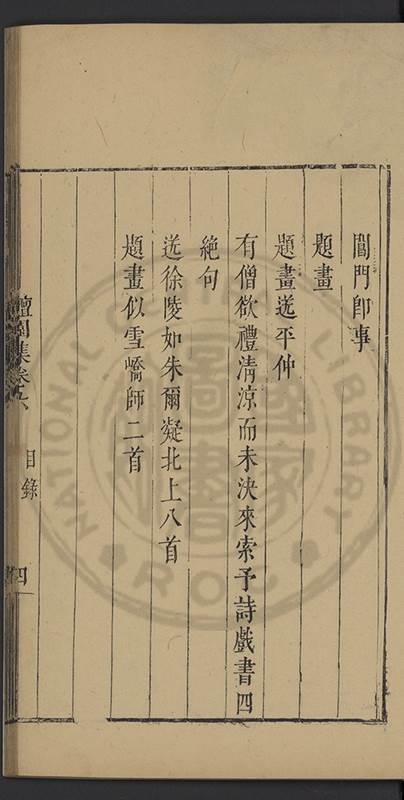 閶門即事
題畫
題畫送平仲
有僧欲禮清涼而未決來索予詩戲書四
絕句
送徐陵如朱爾凝北上八首
題畫似雪嶠師二首
檀園集卷六
目錄
四
NATIONAL CENTRAL LIBRARY
ROC
國家圖書